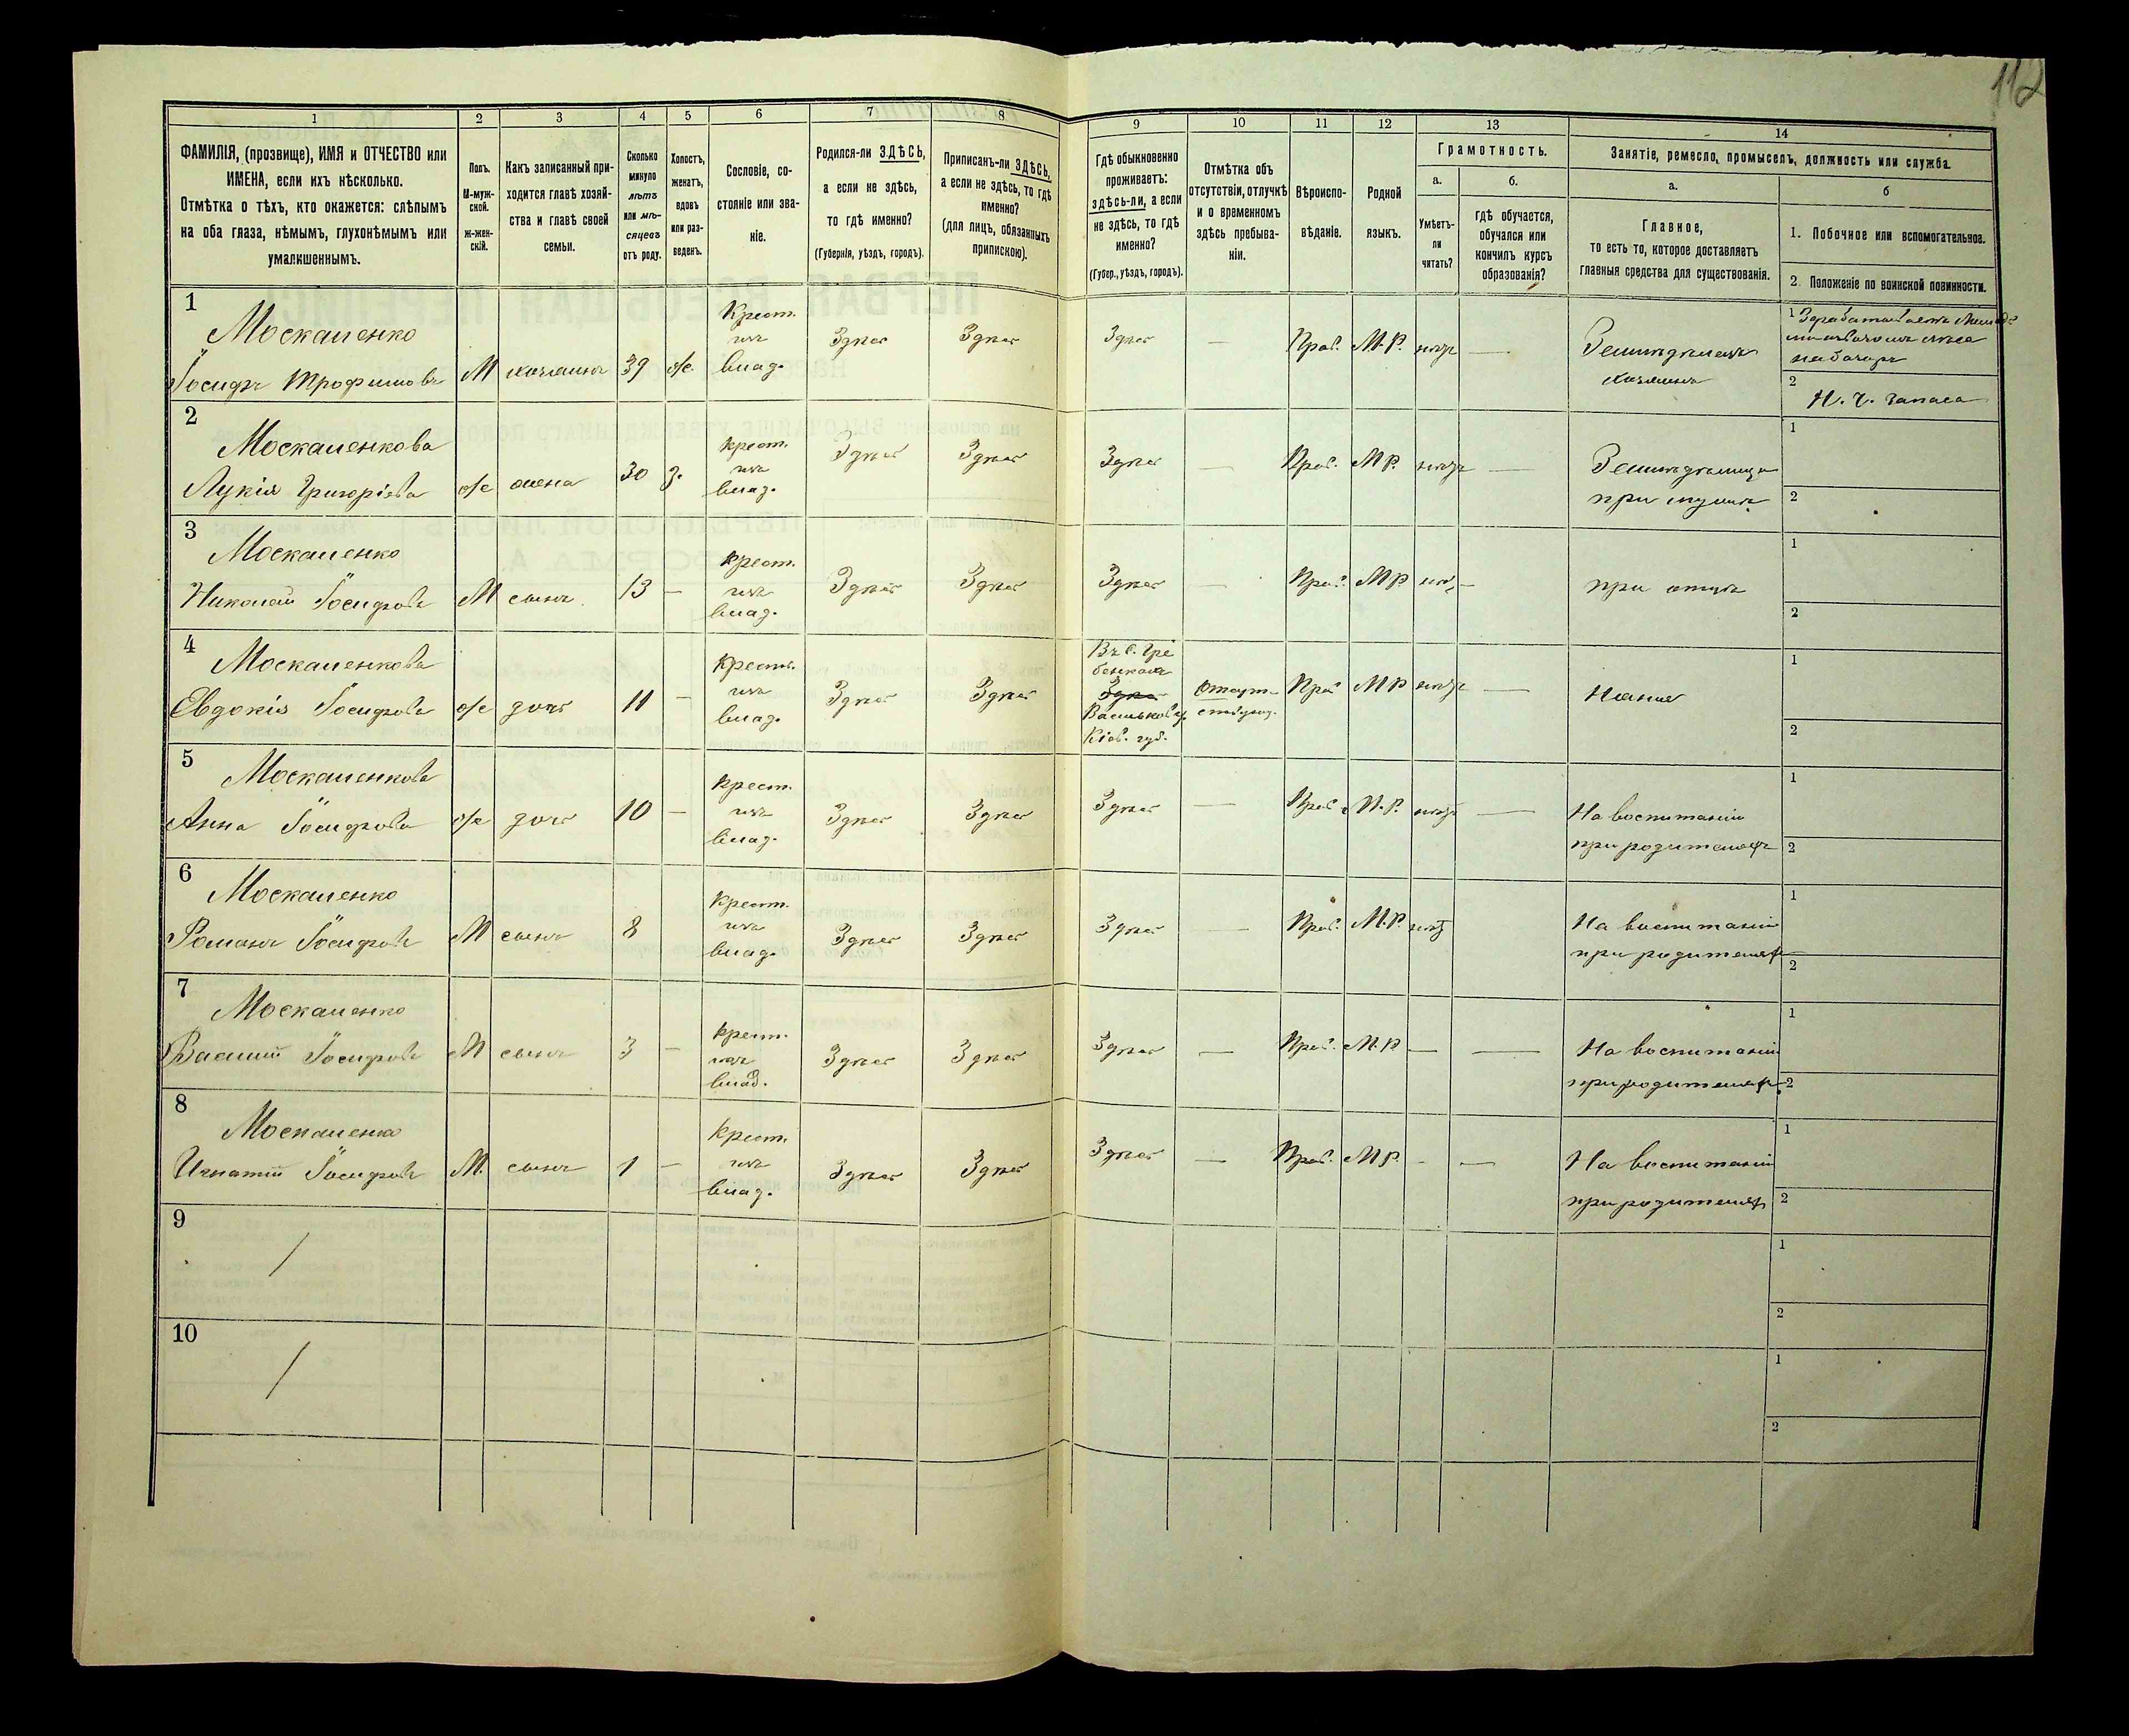 112
1
2
3
4
5
6
7
8
9
10
11
12
13
14
ФАМИЛІЯ, (прозвище), ИМЯ и ОТЧЕСТВО или
ИМЕНА, если ихъ нѣсколько.
Отмѣтка о тѣхъ, кто окажется: слѣпымъ
на оба глаза, нѣмымъ, глухонѣмымъ или
умалишеннымъ.
Полъ.
М-муж-
ской.
ж-жен-
скій.
Какъ записанный при-
ходится главѣ хозяй-
ства и главѣ своей
семьи.
Сколько
минуло
лѣтъ
или мѣ-
сяцевъ
отъ роду.
Холостъ,
женатъ,
вдовъ
или раз-
веденъ.
Сословіе, со-
стояніе или зва-
ніе.
Родился-ли ЗДѢСЬ,
а если не здѣсь,
то гдѣ именно?
(Губернія, уѣздъ, городъ).
Приписанъ-ли ЗДѢСЬ,
а если не здѣсь, то гдѣ
именно?
(для лицъ, обязанныхъ
припискою).
Гдѣ обыкновенно
проживаетъ:
здѣсь-ли, а если
не здѣсь, то гдѣ
именно?
(Губер., уѣздъ, городъ).
Отмѣтка объ
отсутствіи, отлучкѣ
и о временномъ
здѣсь пребыва-
ніи.
Вѣроиспо-
вѣданіе.
Родной
языкъ.
Грамотность.
а.
Умѣетъ-
ли
читать?
б.
гдѣ обучается,
обучался или
кончилъ курсъ
образованія?
Занятіе, ремесло, промыселъ, должность или служба.
а.
Главное,
то есть то, которое доставляетъ
главныя средства для существованія.
б
1. Побочное или вспомогательное.
2. Положеніе по воинской повинности.
1
Москаленко
Іосифъ Трофимовъ
М
хозяинъ
39
ж.
Крест.
изъ
влад.
Здѣсь
Здѣсь
Здѣсь
—
Прав.
М.Р.
нѣтъ
—
Земледѣлецъ
хозяинъ
1
на базаръ
2
Н. Ч. запаса
2
Москаленкова
Лукія Григоріева
ж
жена
30
з.
крест.
изъ
влад.
Здѣсь
Здѣсь
Здѣсь
—
Прав.
М Р.
нѣтъ
—
Земледѣлица
при мужѣ
1
2
3
Москаленко
Николай Іосифовъ
М
сынъ
13
—
крест.
изъ
влад.
Здѣсь
Здѣсь
Здѣсь
—
Прав.
М Р
нѣт
—
при отцѣ
1
2
4
Москаленкова
Евдокія Іосифова
ж
дочь
11
—
крест.
изъ
влад.
Здѣсь
Здѣсь
Въ с. Гре
бенкахъ
Здѣсь
Васильков у.
Кіев. губ.
Прав
М Р
нѣтъ
—
Няня
1
2
5
Москаленкова
Анна Іосифова
ж
дочь
10
—
крест.
изъ
влад.
Здѣсь
Здѣсь
Здѣсь
—
Прав.
М.Р.
нѣтъ
—
На воспитаніи
при родителяхъ
1
2
6
Москаленко
Романъ Іосифовъ
М
сынъ
8
Крест.
изъ
влад.
Здѣсь
Здѣсь
Здѣсь
—
Прав.
М.Р.
нѣтъ
На воспитаніи
при родителяхъ
1
2
7
Москаленко
Василій Іосифовъ
М
сынъ
3
—
крест.
изъ
влад.
Здѣсь
Здѣсь
Здѣсь
—
Прав.
М.Р
—
—
На воспитаніи
при родителяхъ
1
2
8
Москаленко
Игнатій Іосифовъ
М.
сынъ
1
—
Крест.
изъ
влад.
Здѣсь
Здѣсь
Здѣсь
—
Прав.
М Р.
—
—
На воспитаніи
при родителяхъ
1
2
9
/
1
2
10
/
1
2